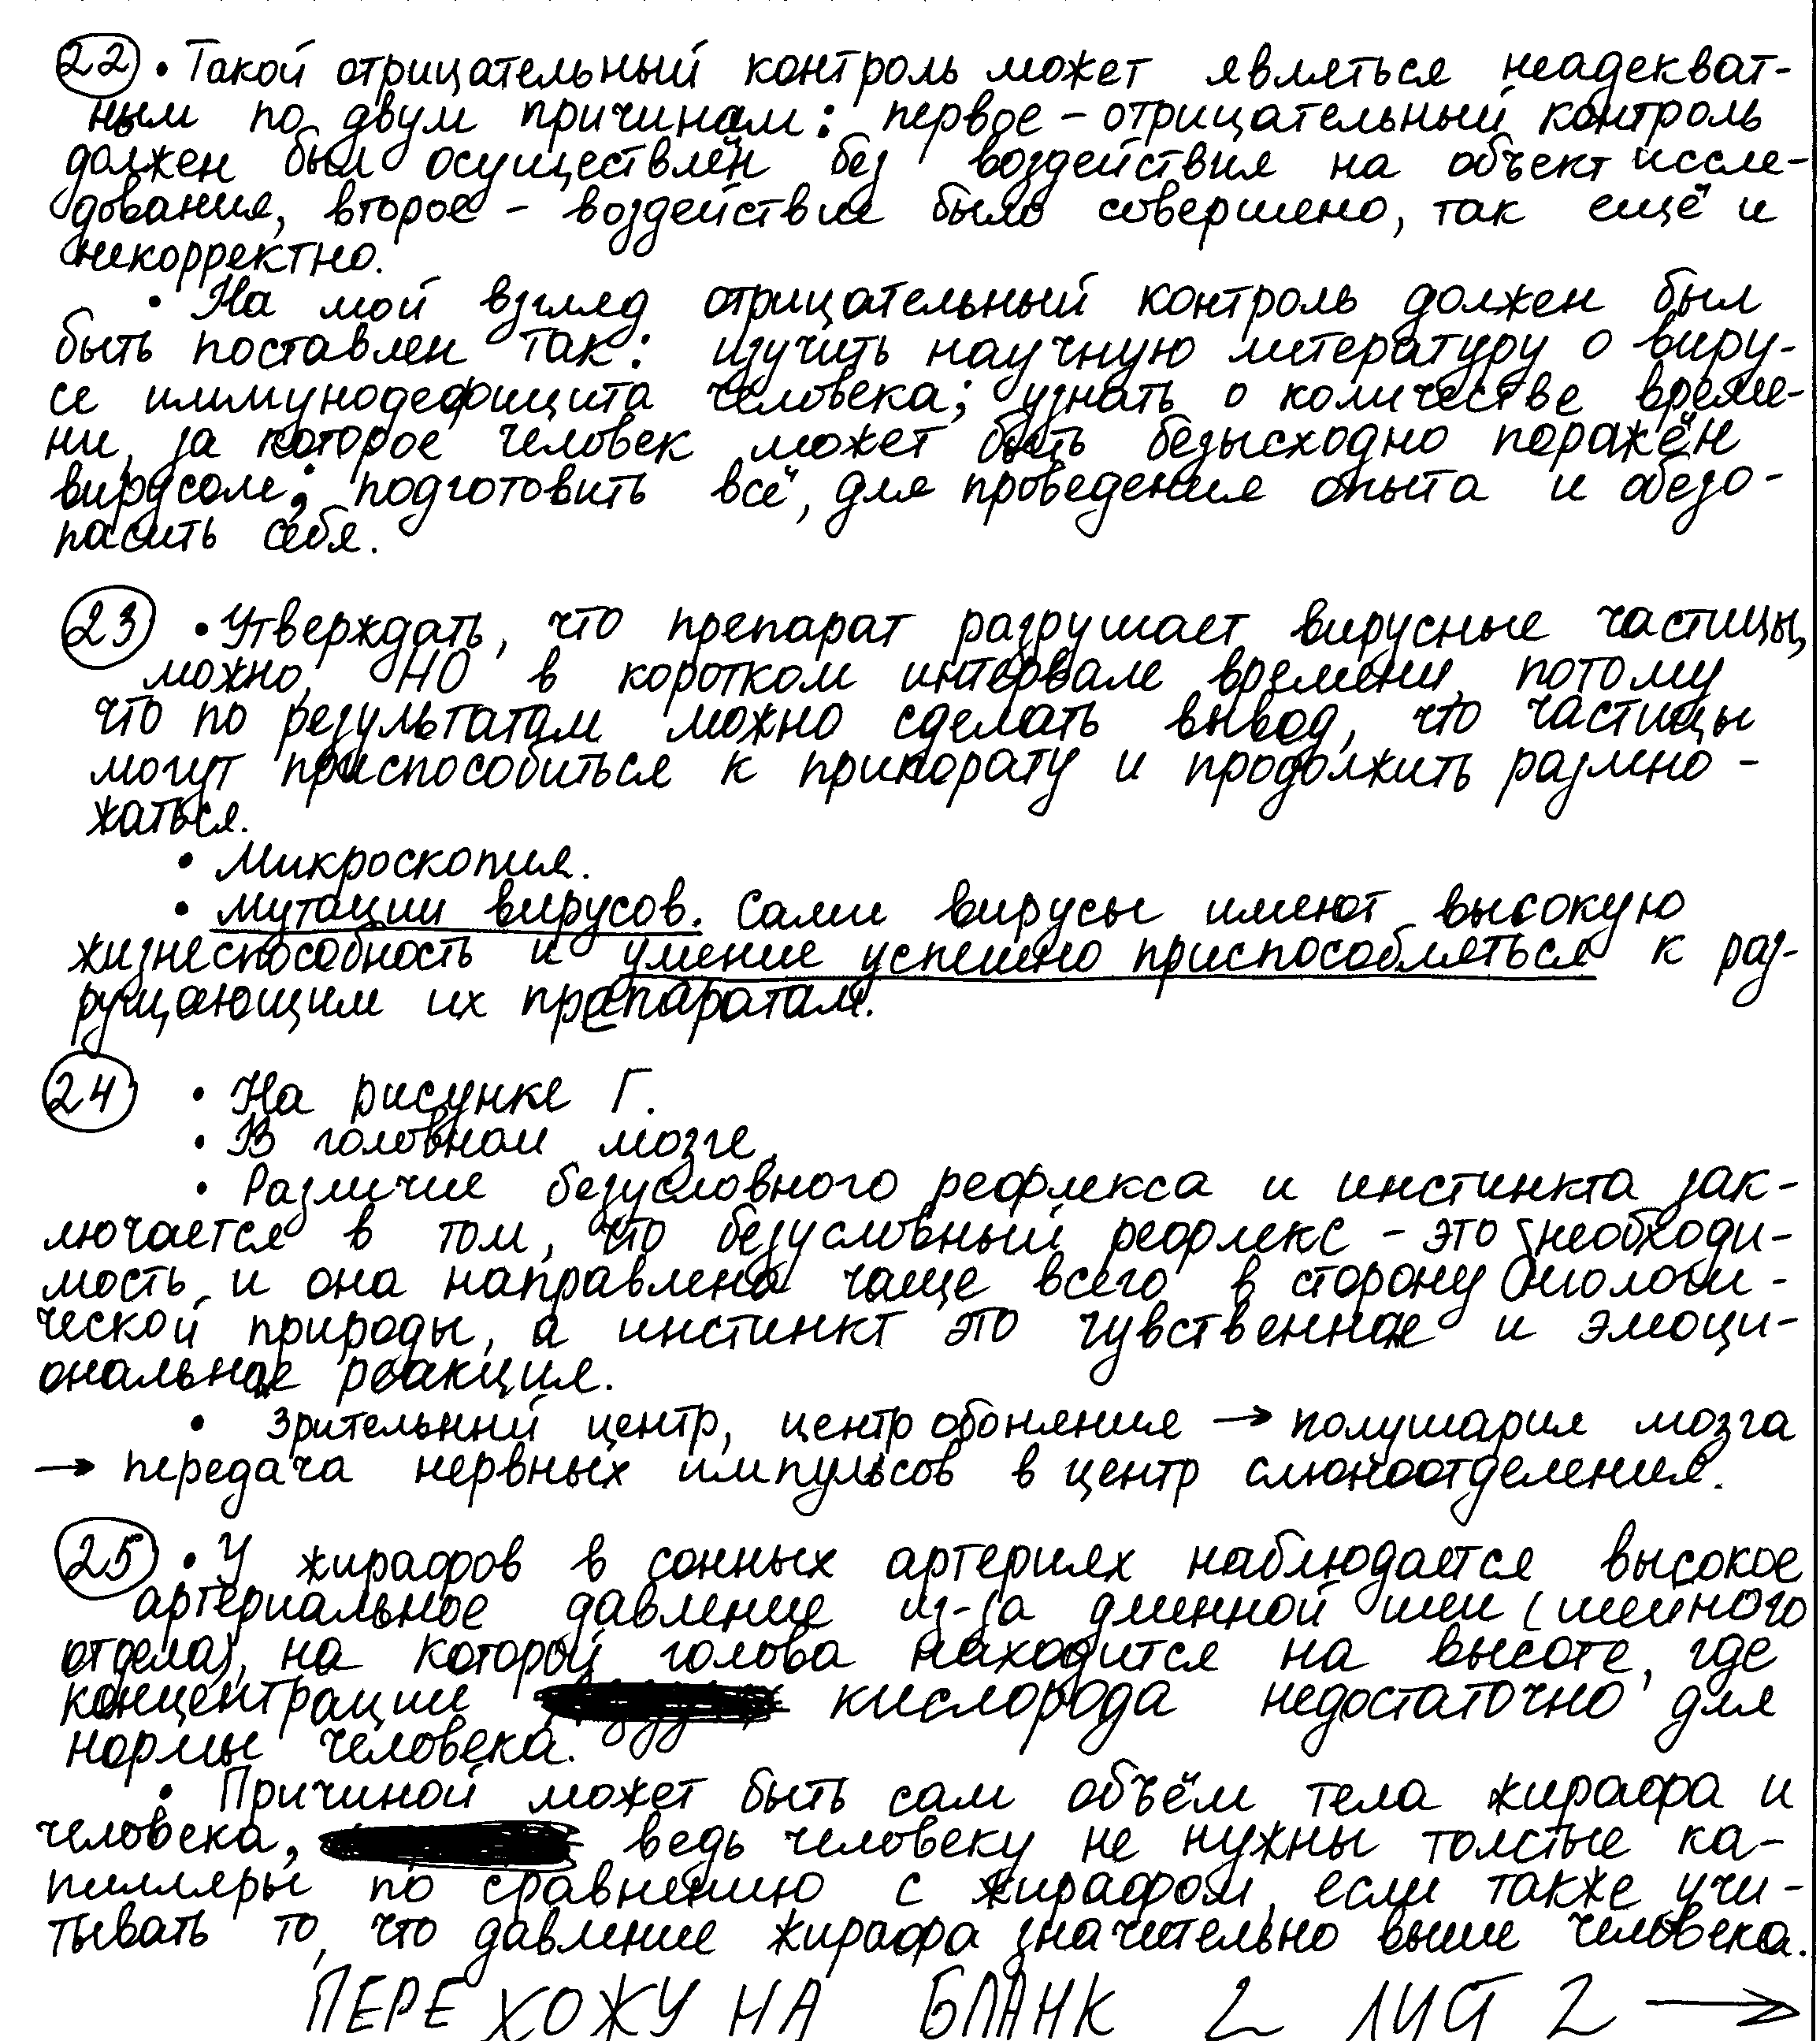 22 • Такой отрицательный контроль может являться неадекват-
ным по двум причинам: первое – отрицательный контроль
должен был осуществлён без воздействия на объект иссле-
дования, второе – воздействие было совершено, так ещё и
некорректно.
• На мой взгляд отрицательный контроль должен был
быть поставлен так: изучить научную литературу о виру-
се иммунодефицита человека; узнать о количестве време-
ни, за которое человек может быть безысходно поражён
вирусом; подготовить всё, для проведения опыта и обезо-
пасить себя.
23 • Утверждать, что препарат разрушает вирусные частицы,
можно, НО в коротком интервале времени, потому
что по результатам можно сделать вывод, что частицы
могут приспособиться к припорату и продолжить размно-
жаться.
• Микроскопия.
• Мутации вирусов. Сами вирусы имеют высокую
жизнеспособность и умение успешно приспособляться к раз-
рущающим их препаратам.
24 • На рисунке Г.
• В головном мозге.
• Различие безусловного рефлекса и инстинкта зак-
лючается в том, что безусловный рефлекс – это необходи-
мость и она направлена чаще всего в сторону биологи-
ческой природы, а инстинкт это чувственная и эмоци-
ональная реакция.
• Зрительный центр, центр обоняния → полушария мозга
→ передача нервных импульсов в центр слюноотделения.
25 • У жирафов в сонных артериях наблюдается высокое
артериальное давление из-за длинной шеи (шейного
отдела), на которой голова находится на высоте, где
концентрации кислорода недостаточно для
нормы человека.
• Причиной может быть сам объём тела жирафа и
человека, ведь человеку не нужны толстые ка-
пилляры по сравнению с жирафом, если также учи-
тывать то, что давление жирафа значительно выше человека.
ПЕРЕХОЖУ НА БЛАНК 2 ЛИСТ 2 →